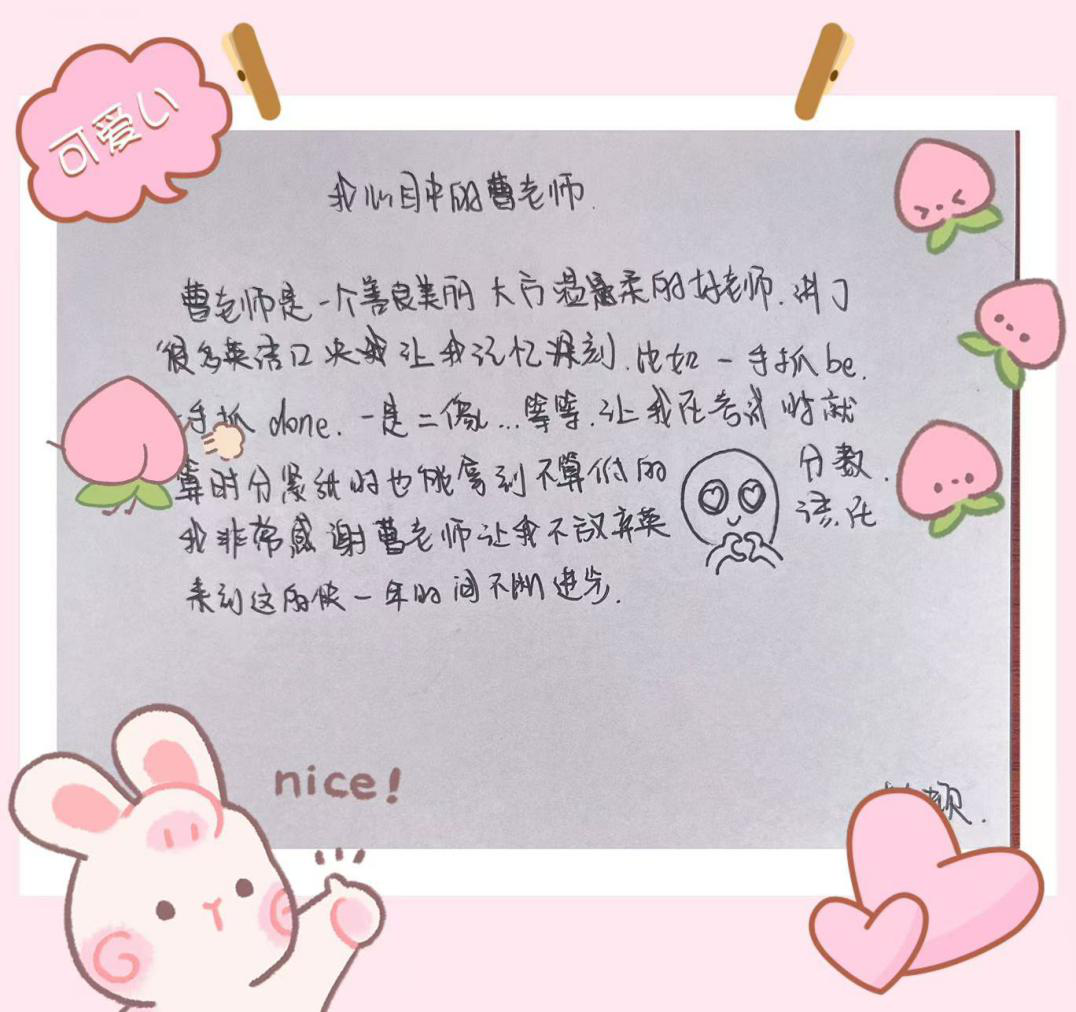 可爱い
我心目中的曹老师.
曹老师是一个善良美丽大方温柔的好老师.讲了
很多英语口决我让我记忆深刻.比如一手抓be.
手抓done.一是二像...等等.让我在考试时就
算时分紧张时也能拿到不算低的分数.
我非常感谢曹老师让我不放弃英语.在
来到这的快一年时间不断进步.
nice!